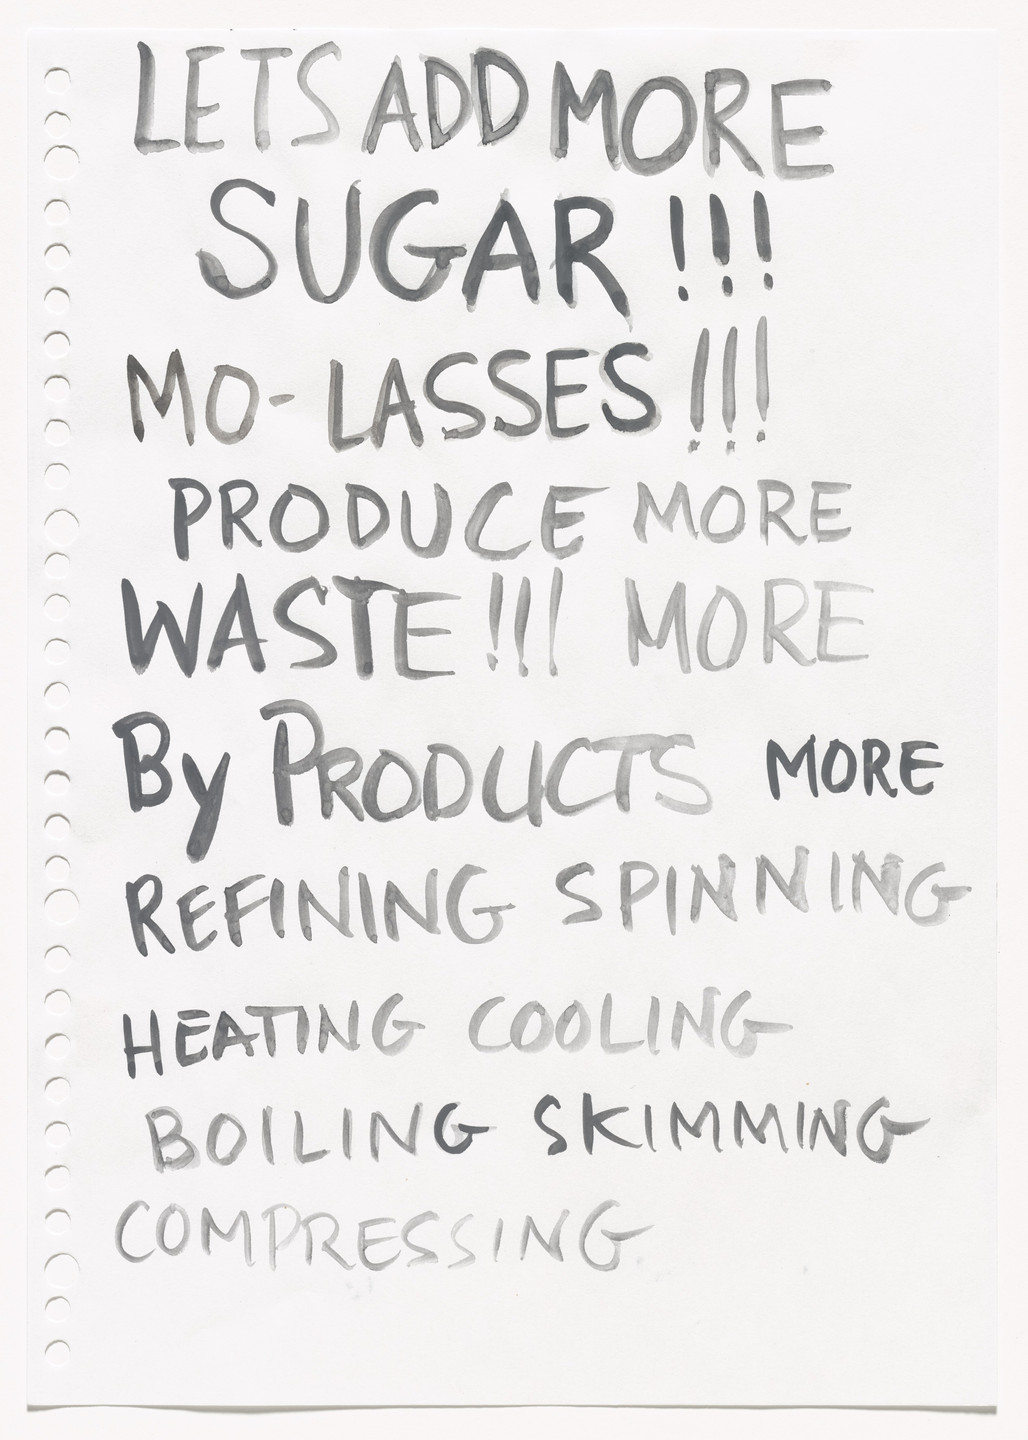 LETS ADD MORE
SUGAR !!!
MO-LASSES !!!
PRODUCE MORE
WASTE!!! MORE
By PRODUCTS MORE
REFINING SPINNING
HEATING COOLING
BOILING SKIMMING
COMPRESSING